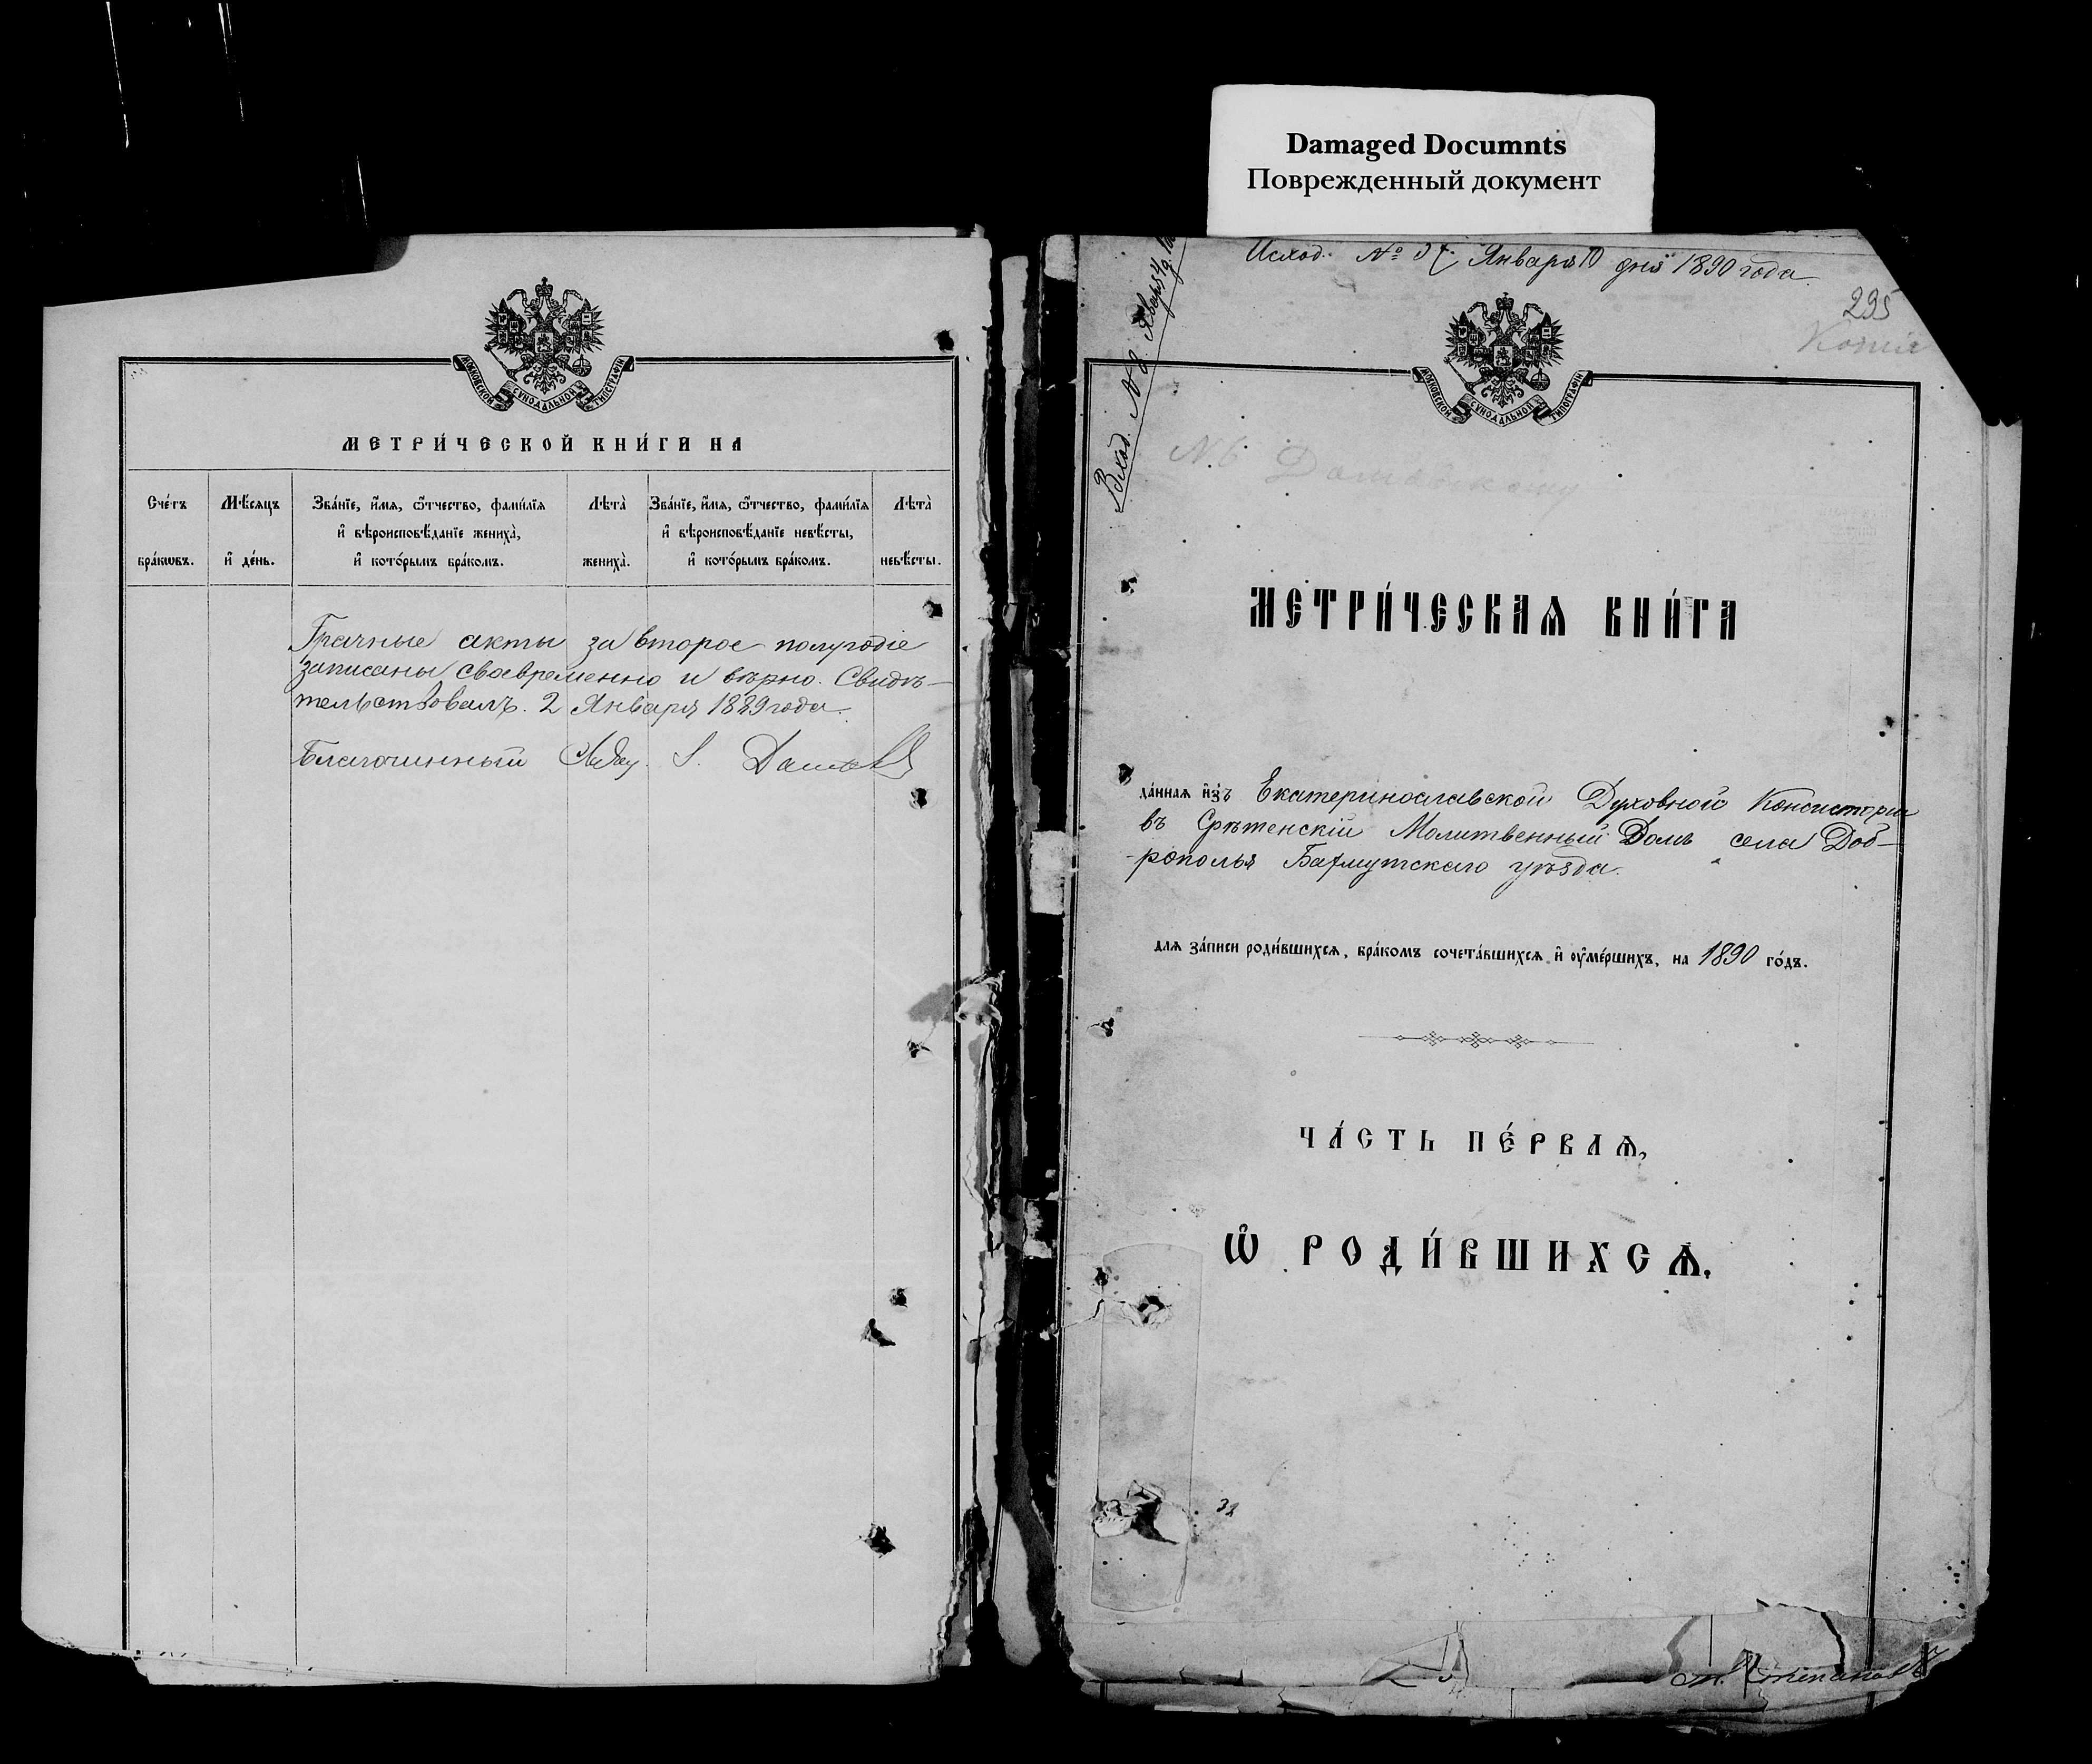 Damaged Documnts
Поврежденный документ
МОСКОВСКОЙ СѴНОДАЛЬНОЙ ТИПОГРАФІИ
МЕТРИ́ЧЕСКОЙ КНИ́ГИ НА
Сче́тъ бра́кѡвъ.
Мѣ́сяцъ и҆ де́нь.
Зва́нїе, и҆́мѧ, ѻ҆́тчество, фами́лїѧ
и҆ вѣроисповѣ́данїе жениха̀,
и҆ кото́рымъ бра́комъ.
Лѣта̀ жениха̀.
Зва́нїе, и҆́мѧ, ѻ҆́тчество, фами́лїѧ
и҆ вѣроисповѣ́данїе невѣ́сты,
и҆ кото́рымъ бра́комъ.
Лѣта̀ невѣ́сты.
Брачные акты за второе полугодіе
записаны своевременно и вѣрно. Свидѣ-
тельствовалъ. 2 Января 1889 года.
Благочинный
Исход. № Января 10 дня 1890 года.
Вход. №
295
Копія
МОСКОВСКОЙ СѴНОДАЛЬНОЙ ТИПОГРАФІИ
N. 6
МЕТРИ́ЧЕСКАѦ КНИ́ГА
да́ннаѧ и҆зъ Екатеринославской Духовной Консисторіи
въ Срѣтенскій Молитвенный Домъ села Доб-
рополья Бахмутскаго уѣзда.
длѧ за́писи роди́вшихсѧ, бра́комъ сочета́вшихсѧ и҆ ᲂу҆ме́ршихъ, на 1890 го́дъ.
ЧА́СТЬ ПЕ́РВАѦ,
Ѽ РОДИ́ВШИХСѦ.